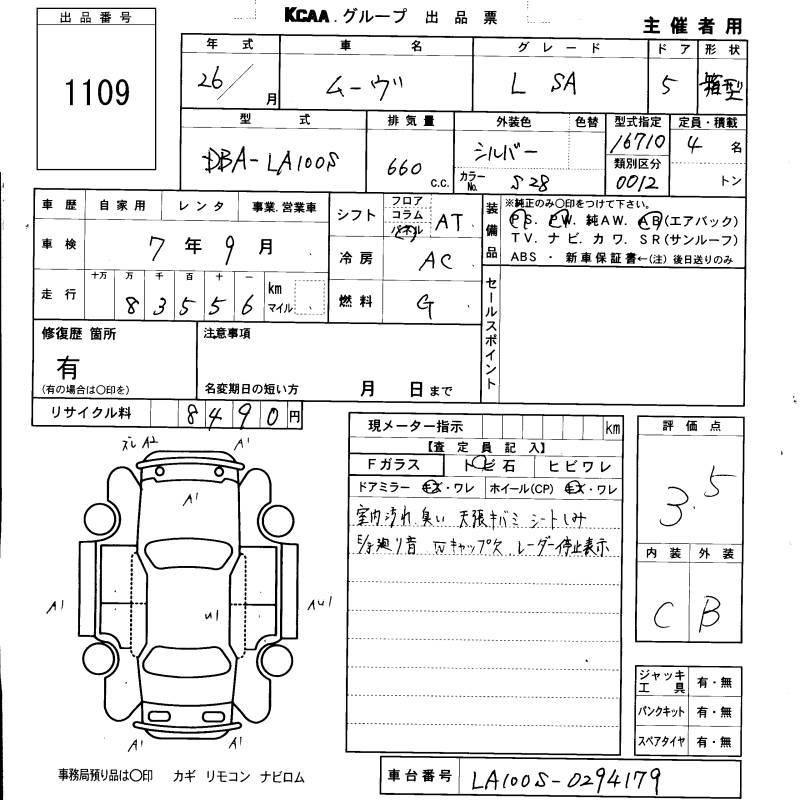 KCAA グループ 出品票
主催者用
出品番号
1109
年式 車名 グレード ドア 形状
26/ 月 ムーヴ L SA 5 箱型
型式 排気量 外装色 色替 型式指定 定員・積載
DBA-LA100S 660 c.c. シルバー 16710 4 名
カラーNo. S28 類別区分 0012 トン
車歴 自家用 レンタ 事業.営業車
車検 7年9月
走行 十万 万 千 百 十 一 km マイル
8 3 5 5 6
シフト フロア コラム パネル AT
冷房 AC
燃料 G
装備品 ※純正のみ〇印をつけて下さい。
PS. PW. 純AW. AB(エアバック)
TV. ナビ. カワ. SR(サンルーフ)
ABS ・ 新車保証書←(注) 後日送りのみ
セールスポイント
修復歴 箇所
有
(有の場合は〇印を)
注意事項
名変期日の短い方 月 日まで
リサイクル料 8490円
現メーター指示 km
【査定員記入】
Fガラス トビ石 ヒビワレ
ドアミラー キズ・ワレ ホイール(CP) キズ・ワレ
室内汚れ 臭い 天張キバミ シートしみ
E/g廻り音 Wキャップ欠 レーダー停止表示
評価点
3.5
内装 外装
C B
ズレ A2
A1
A1
A1
U1
AU1
A1
ジャッキ工具 有・無
パンクキット 有・無
スペアタイヤ 有・無
事務局預り品は〇印 カギ リモコン ナビロム
車台番号 LA100S-0294179